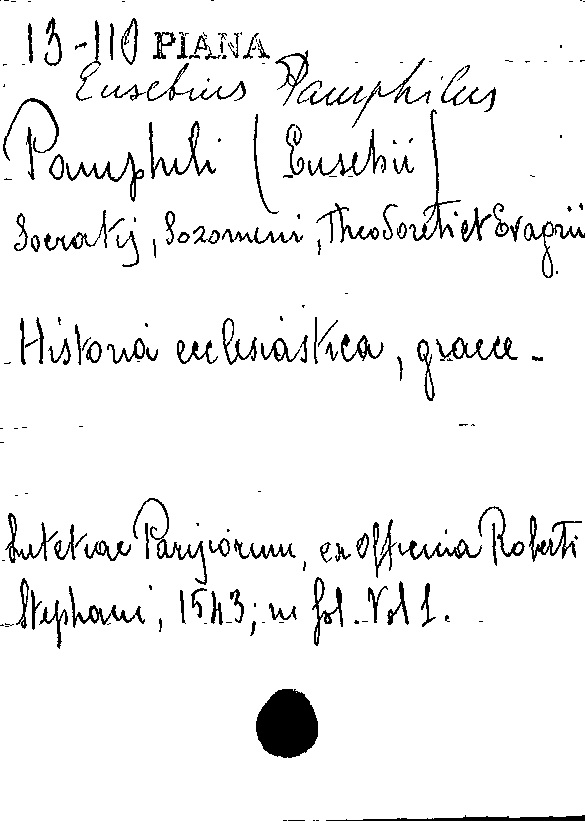 13-110 PIANA
Eusebius Pamphilus
Pamphili (Eusebii)
Socratis, Sozomeni, Theodoreti et Evagrii
Historia ecclesiastica, graece -
Lutetiae Parisiorum, ex officina Roberti
Stephani, 1543; in fol. Vol 1.